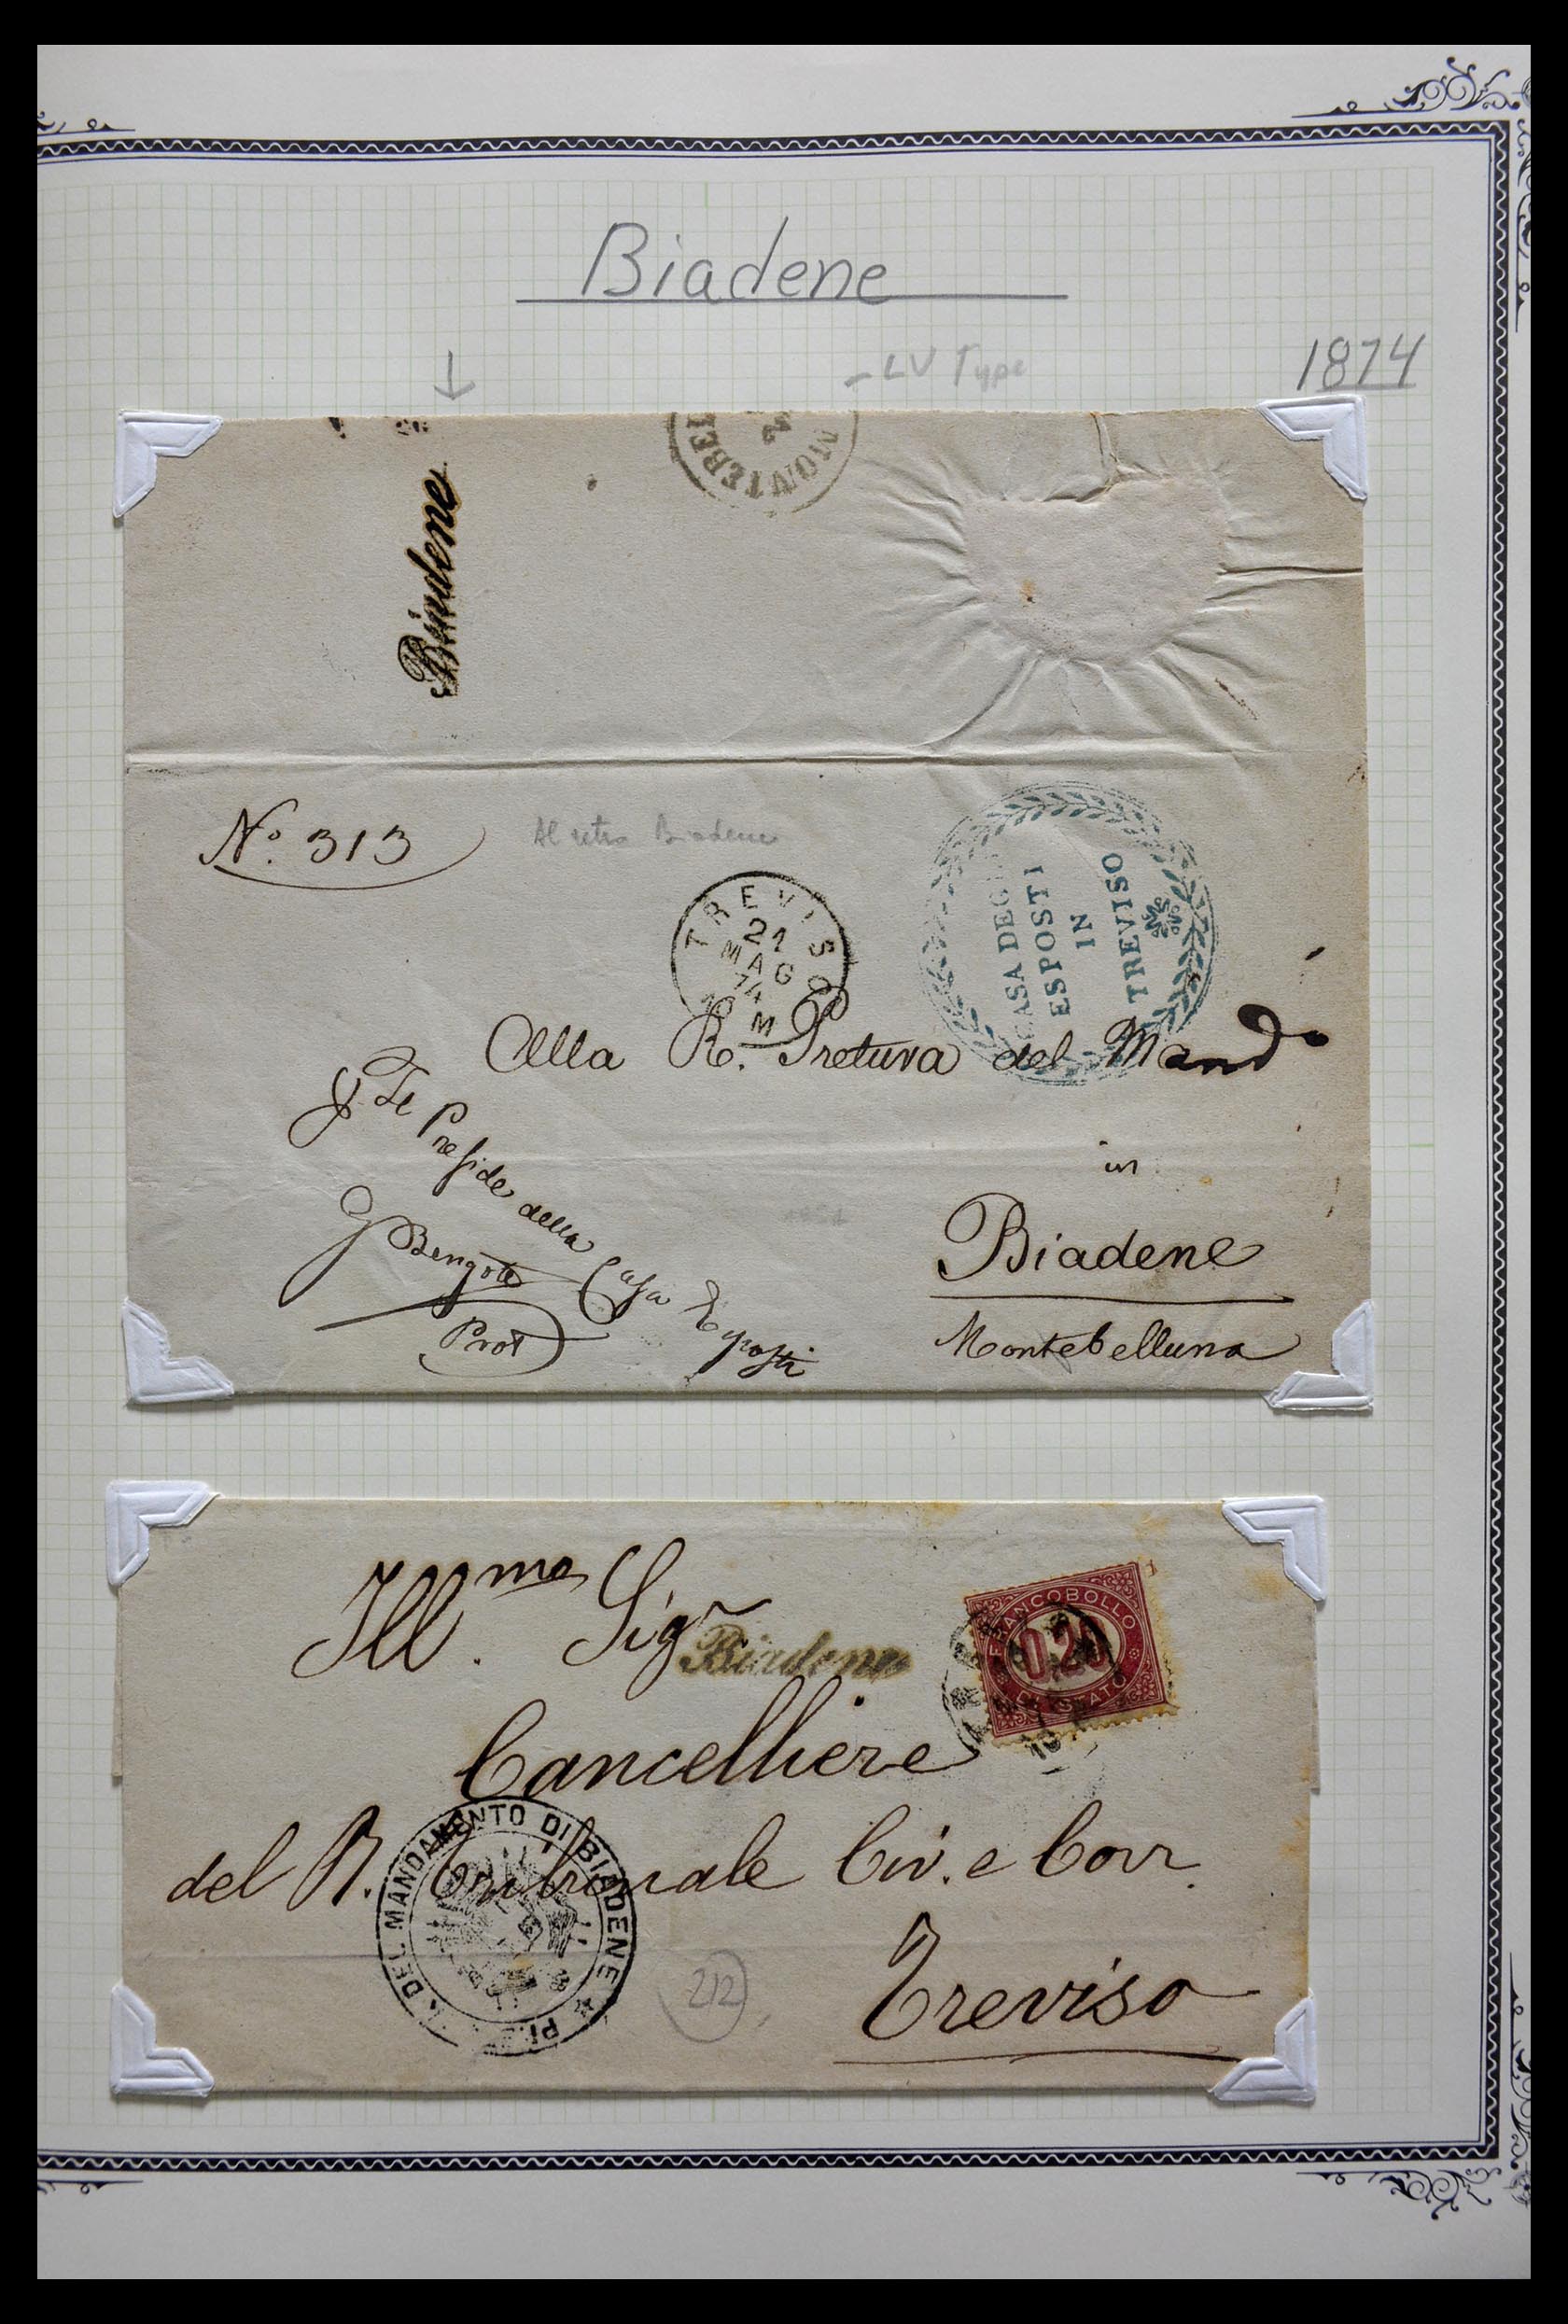 Biadene
- LV Type
1874
Biadene
MONTEBEL
N.º 313
Al retro Biadene
TREVISO
21
MAG
74
10 M
CASA DEGLI
ESPOSTI
IN
TREVISO
Alla R. Pretura del Mand.º
in
Biadene
Montebelluna
Preside della Casa Esposti
Prot
Ill.mo Sigr
Biadene
FRANCOBOLLO
0.20
DI STATO
10
Cancelliere
del R. Tribunale Civ. e Corr.
Treviso
DEL MANDAMENTO DI BIADENE
212